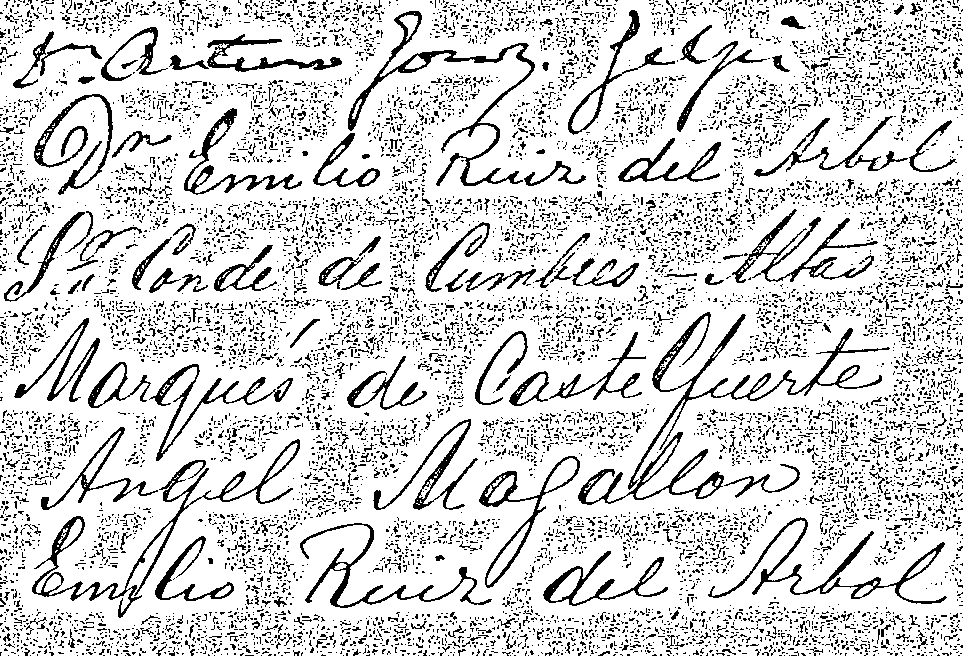 Dn. Arturo Gonz. Gelpí
Dn Emilio Ruiz del Arbol
Sr. Conde de Cumbres-Altas
Marqués de Castelfuerte
Angel Magallon
Emilio Ruiz del Arbol